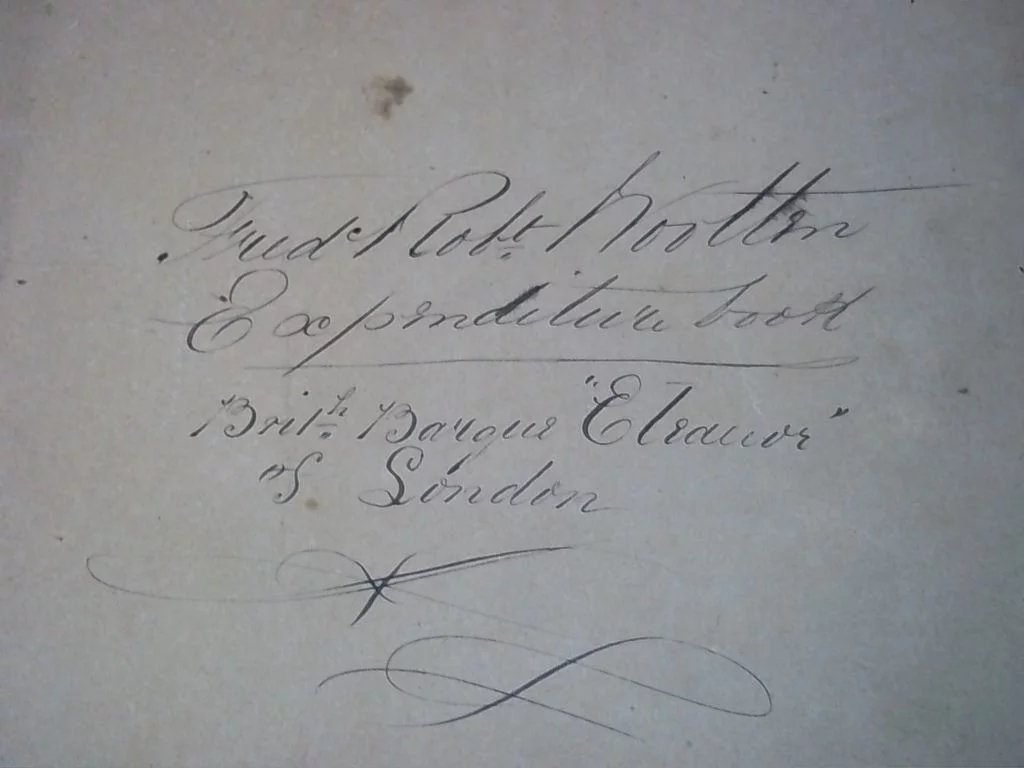 Fredc Robt. Wootton
Expenditure book
Brith. Barque "Eleanor"
of London